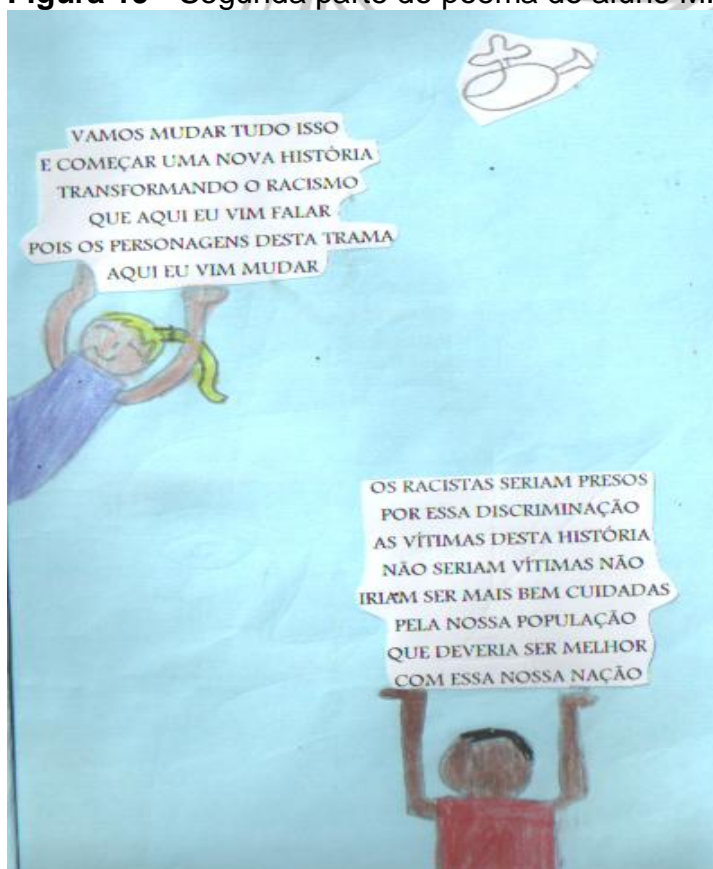 Segunda parte do poema do aluno
VAMOS MUDAR TUDO ISSO
E COMEÇAR UMA NOVA HISTÓRIA
TRANSFORMANDO O RACISMO
QUE AQUI EU VIM FALAR
POIS OS PERSONAGENS DESTA TRAMA
AQUI EU VIM MUDAR
OS RACISTAS SERIAM PRESOS
POR ESSA DISCRIMINAÇÃO
AS VÍTIMAS DESTA HISTÓRIA
NÃO SERIAM VÍTIMAS NÃO
IRIAM SER MAIS BEM CUIDADAS
PELA NOSSA POPULAÇÃO
QUE DEVERIA SER MELHOR
COM ESSA NOSSA NAÇÃO